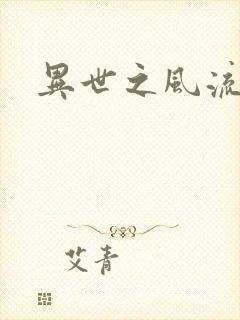 異世之風流
艾青